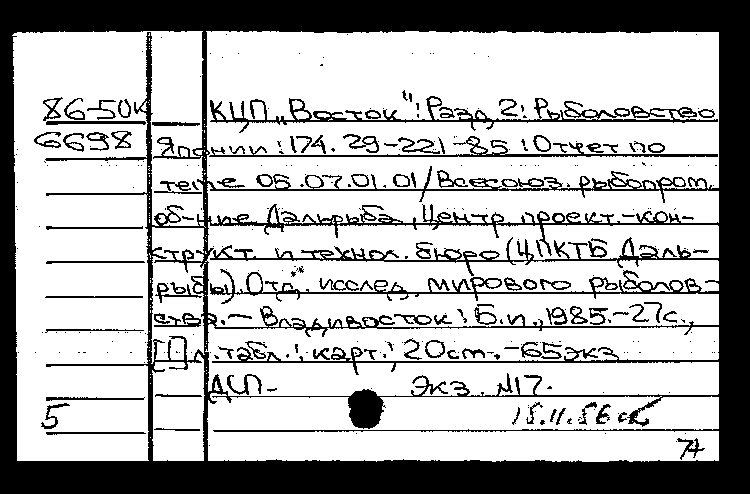 86-50к КЦП „Восток": Разд. 2: Рыболовство
6698 Японии: 174. 29-221-85: Отчет по
теме 05.07.01.01/Всесоюз. рыбопром.
об-ние Дальрыба, Центр. проект.-кон-
структ. и технол. бюро (ЦПКТБ Даль-
рыбы). Отд. исслед. мирового рыболов-
ства. – Владивосток: Б.и., 1985. – 27с.,
[1] л. табл.: карт.; 20cm. – 65экз
ДСП- Экз. №17.
5 15.11.86
74